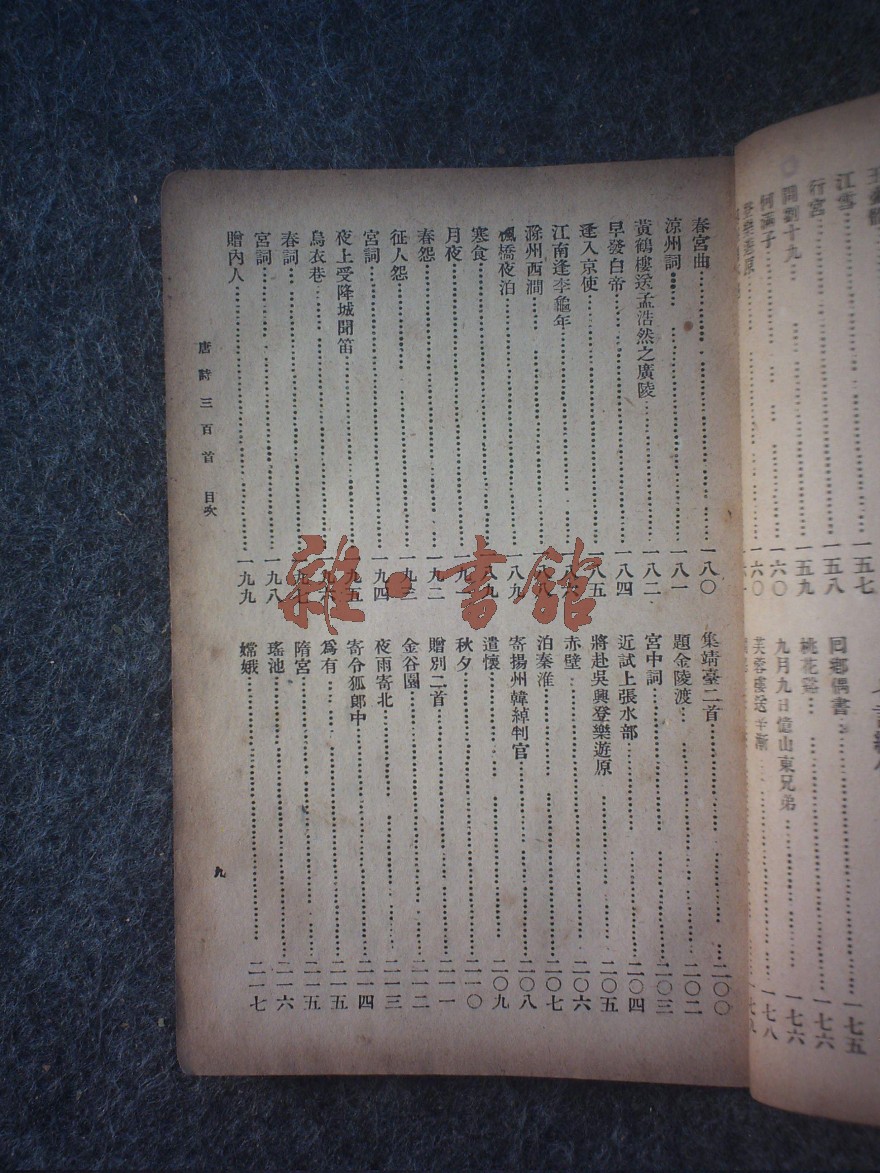 江雪……一五八
行宮……一五九
問劉十九……一六〇
何滿子……一六〇
回鄉偶書……一七五
桃花谿……一七六
九月九日憶山東兄弟……一七六
芙蓉樓送辛漸……一七八
春宮曲……一八〇
涼州詞……一八一
黃鶴樓送孟浩然之廣陵……一八二
早發白帝……一八四
逢入京使……一八五
江南逢李龜年……一八六
滁州西澗……一八八
楓橋夜泊……一八九
寒食……一八九
月夜……一九一
春怨……一九二
征人怨……一九三
宮詞……一九四
夜上受降城聞笛……一九五
烏衣巷……一九六
春詞……一九七
宮詞……一九八
贈內人……一九九
集靖臺二首……二〇〇
題金陵渡……二〇二
宮中詞……二〇三
近試上張水部……二〇四
將赴吳興登樂遊原……二〇五
赤壁……二〇六
泊秦淮……二〇七
寄揚州韓綽判官……二〇八
遣懷……二〇九
秋夕……二一〇
贈別二首……二一一
金谷園……二一二
夜雨寄北……二一三
寄令狐郎中……二一四
爲有……二一五
隋宮……二一五
瑤池……二一六
嫦娥……二一七
唐詩三百首 目次
九
雜·書館